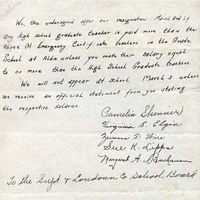 We, the undersigned offer our resignation March 3rd if
any High School graduate teacher is paid more than the
three (3) Emergency Certificate teachers in the Grade
School at Aldie unless you make their salary equal
to or more than the High School Graduate teachers.
We will not appear at School March 3 unless
we receive an official statement from you stating
the respective salaries.
Pamelia
Virginia B. Elgin
Sue K. Lipps
Margaret A.
To the Supt & Loudoun Co School Board